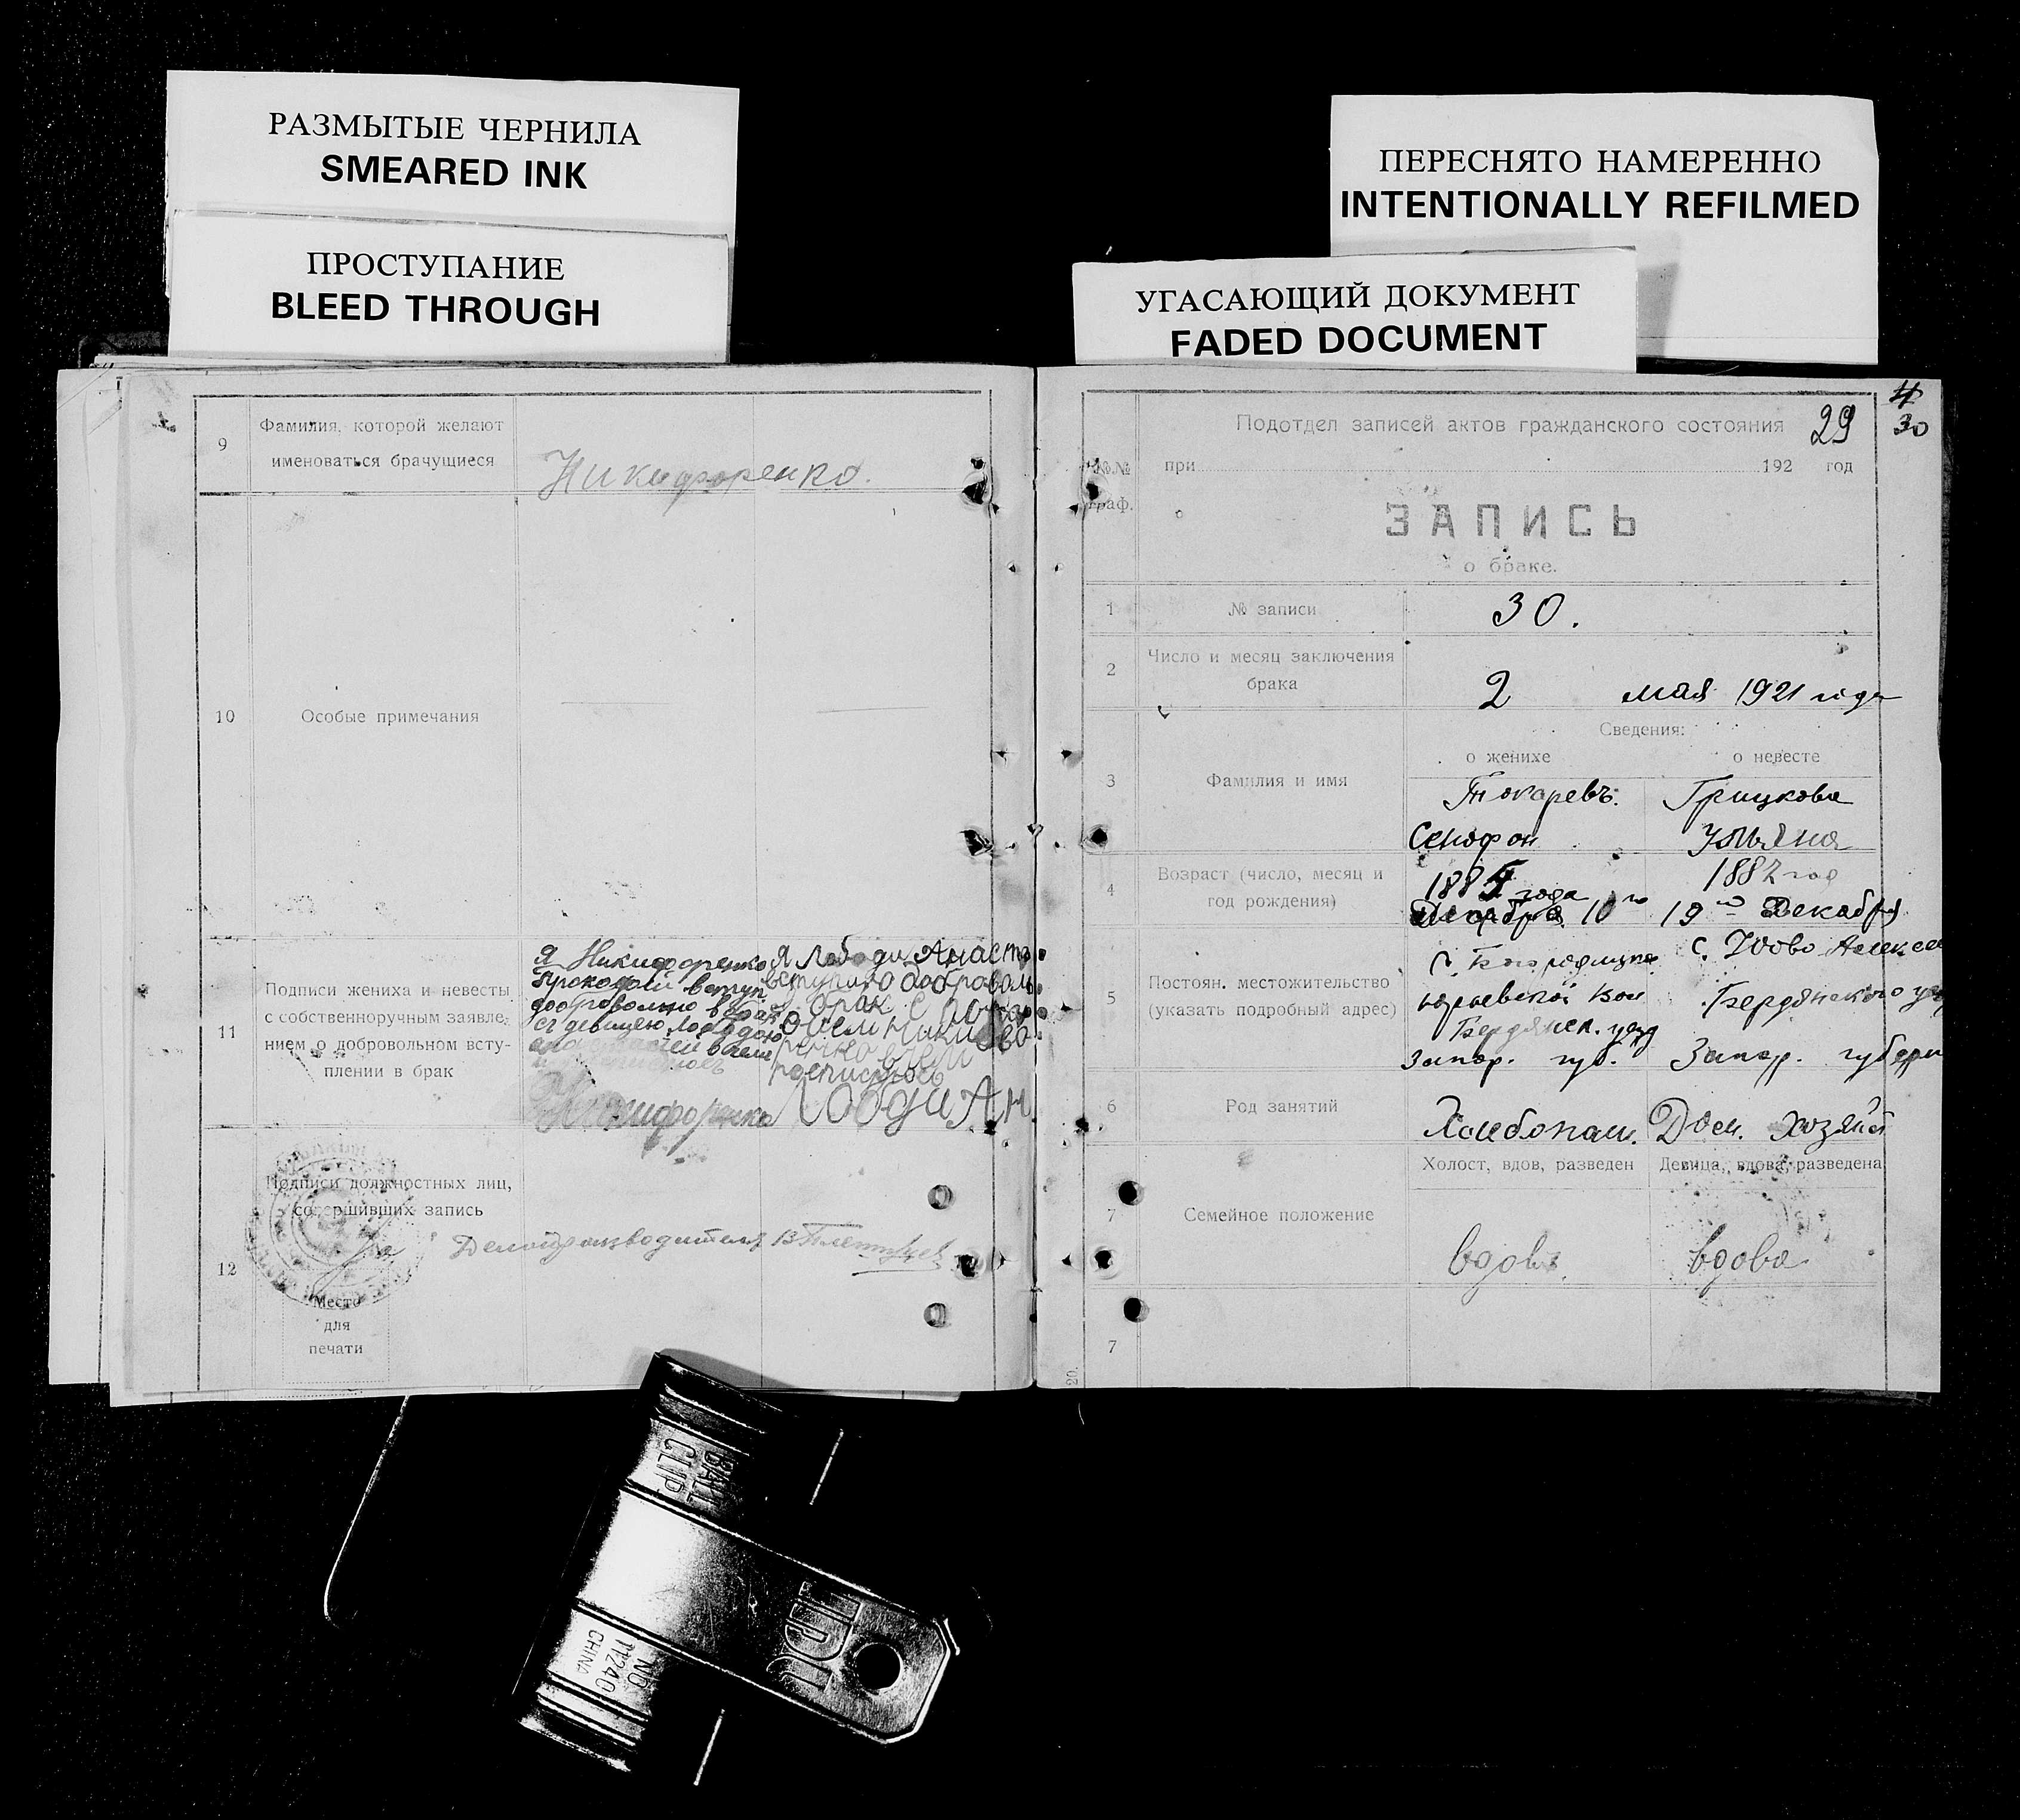 РАЗМЫТЫЕ ЧЕРНИЛА
SMEARED INK
ПРОСТУПАНИЕ
BLEED THROUGH
ПЕРЕСНЯТО НАМЕРЕННО
INTENTIONALLY REFILMED
УГАСАЮЩИЙ ДОКУМЕНТ
FADED DOCUMENT
9
Фамилия, которой желают
именоваться брачущиеся
Никифоренко.
10
Особые примечания
11
Подписи жениха и невесты
с собственноручным заявле-
нием о добровольном всту-
плении в брак
Я Никифоренко
Прокофий вступ
добровольно в брак
съ девицею Лободою
в чем
Никифоренко
Я Лободи Анаста
вступаю доброволь
брак с
Никифо
ренко в чем
росписуюсь
Лободи Ан
12
Подписи должностных лиц,
совершивших запись
Место
для
печати
Делопроизводитель
4
30
Подотдел записей актов гражданского состояния
29
№№
граф.
при 192 год
ЗАПИСЬ
о браке.
1
№ записи
30.
2
Число и месяц заключения
брака
2 мая 1921 года
3
Фамилия и имя
Сведения:
о женихе
о невесте
Токаревъ. Грицкова
Сенофон Ульяна
4
Возраст (число, месяц и
год рождения)
188 года
Декабря 10го
1882 год
19го Декабря
5
Постоян. местожительство
(указать подробный адрес)
с.
Юрьевской Вол
Бердянск. уезд
Запор. губ.
с. Ново Алексе
Бердянского уез
Запор. губерн
6
Род занятий
Хлебопаш. Дом. Хозяйст
7
Семейное положение
Холост, вдов, разведен
Девица, вдова, разведена
вдовъ. вдова
7
20.
BALL
CLIP
NO
11240
CHINA